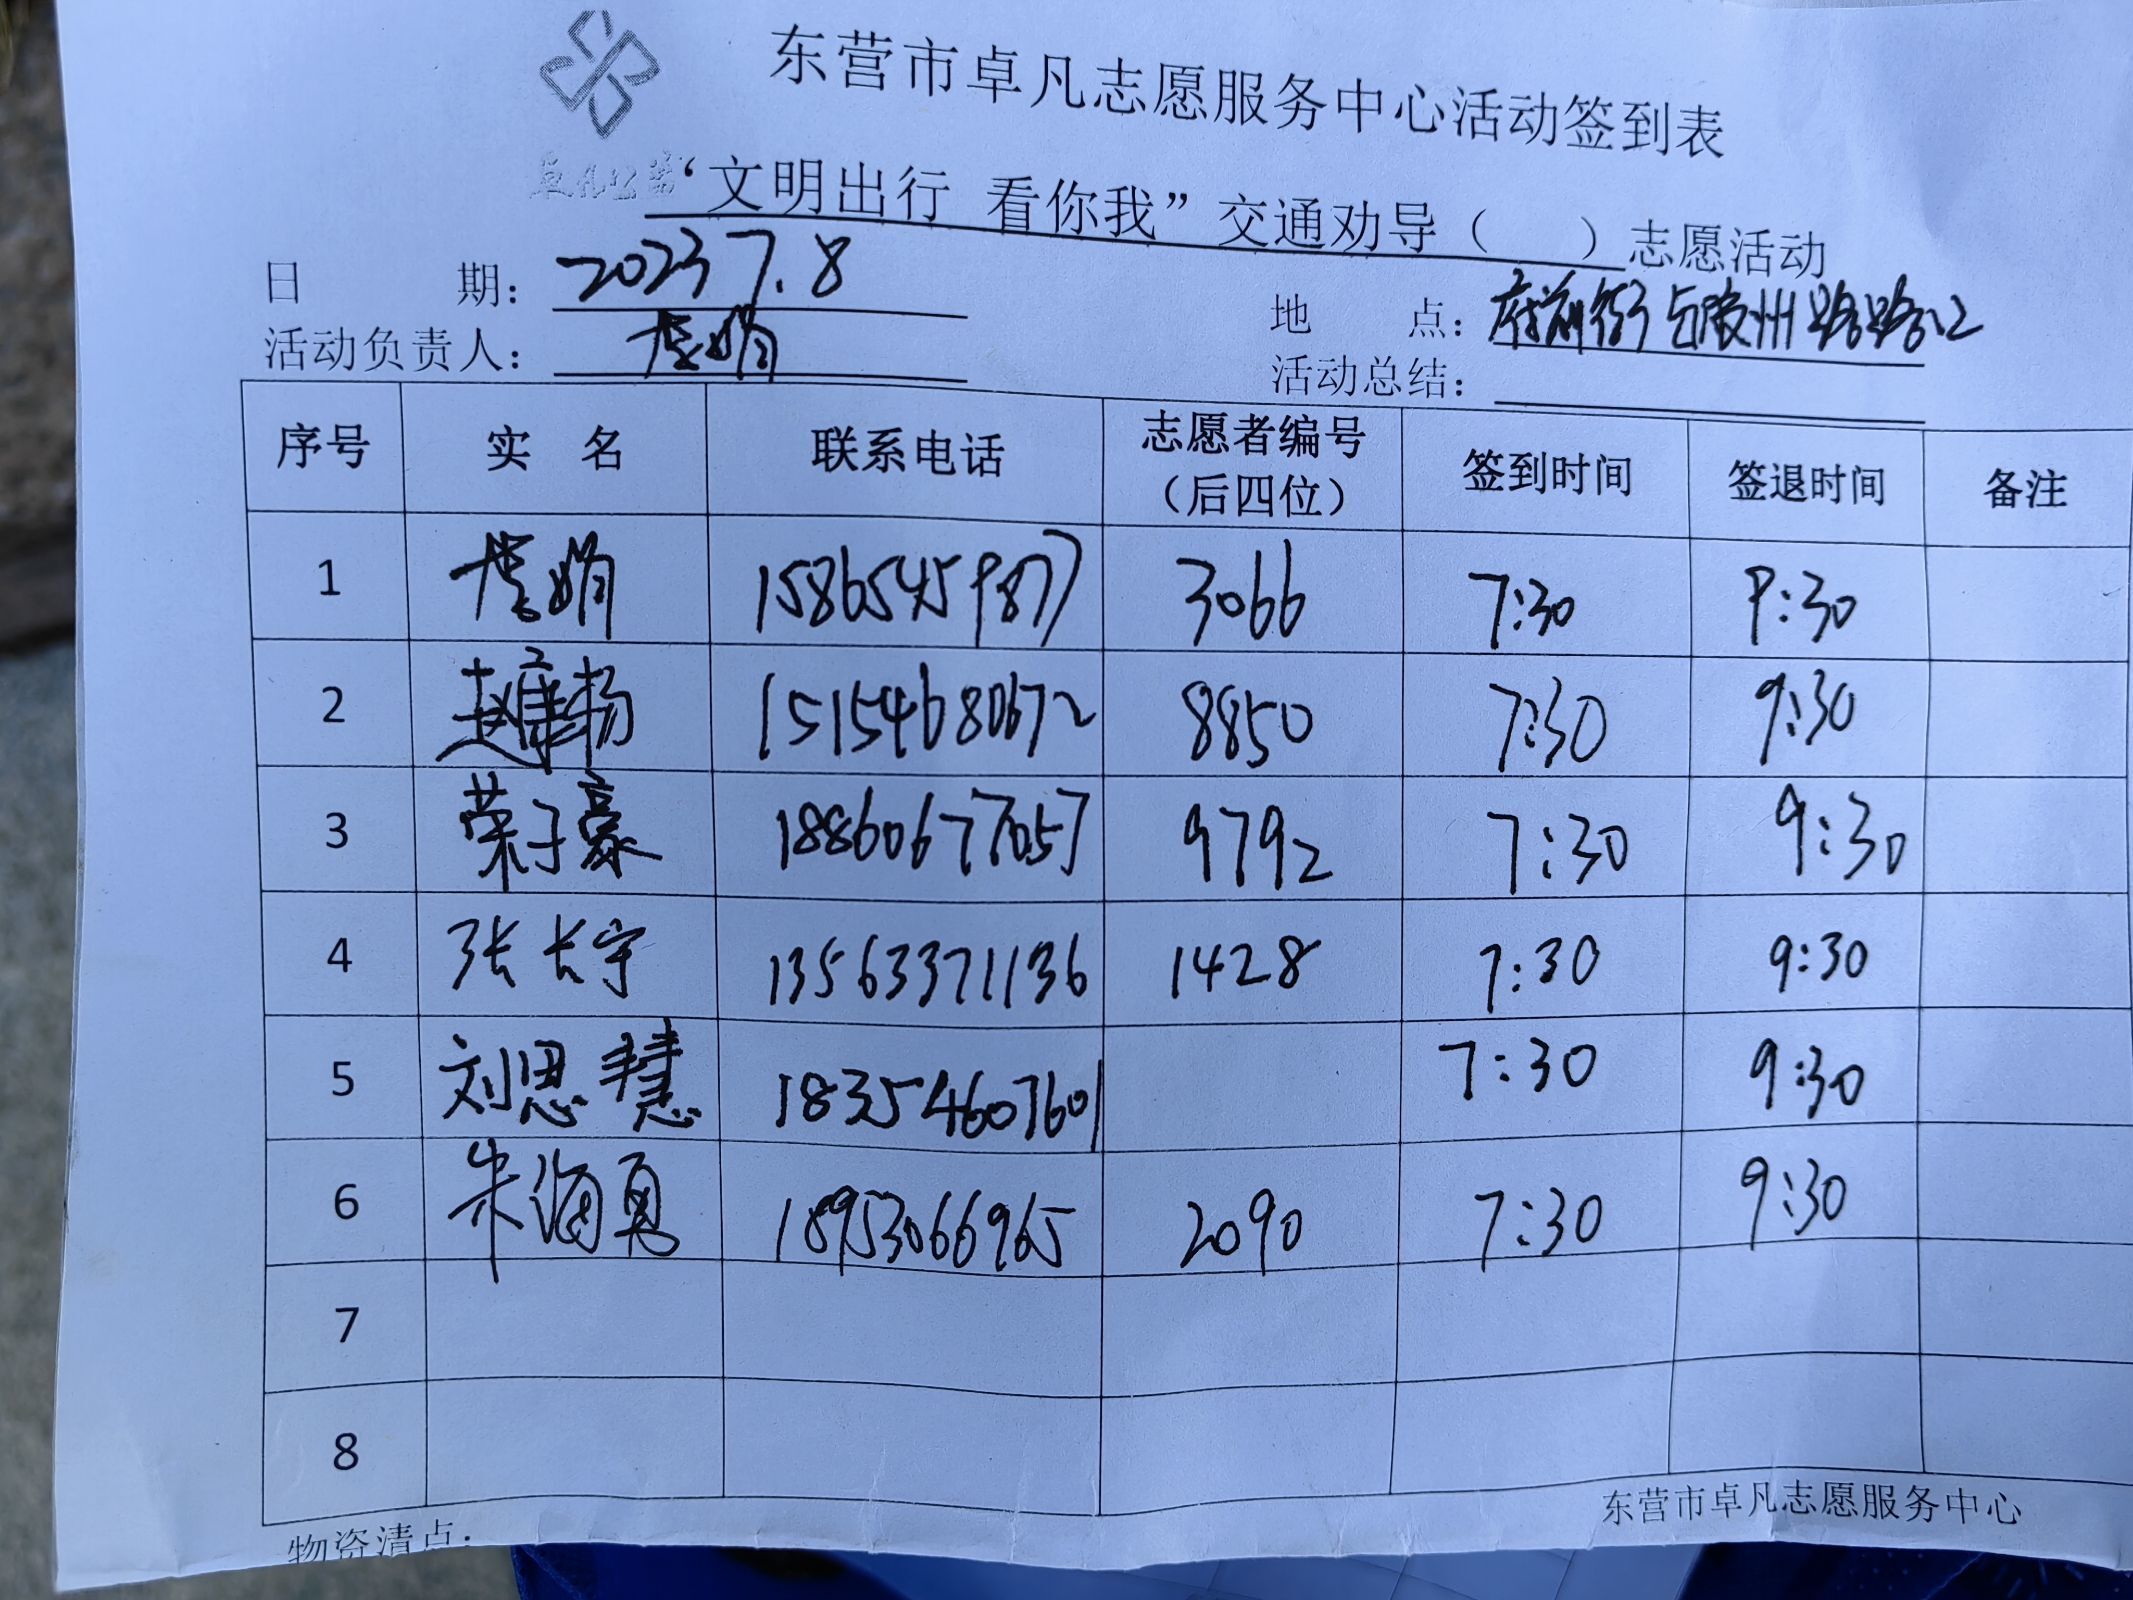 东营市卓凡志愿服务中心活动签到表
“文明出行 看你我”交通劝导（ ）志愿活动
日 期：2023 7.8
地 点：府前街与胶州路路口
活动负责人：
活动总结：
序号 实 名 联系电话 志愿者编号（后四位） 签到时间 签退时间 备注
1 15865459877 3066 7:30 9:30
2 赵康杨 15154680672 8850 7:30 9:30
3 荣子豪 18860677057 9792 7:30 9:30
4 张长宇 13563371136 1428 7:30 9:30
5 刘思慧 18354607601 7:30 9:30
6 朱海勇 18953066965 2090 7:30 9:30
7
8
东营市卓凡志愿服务中心
物资清点：